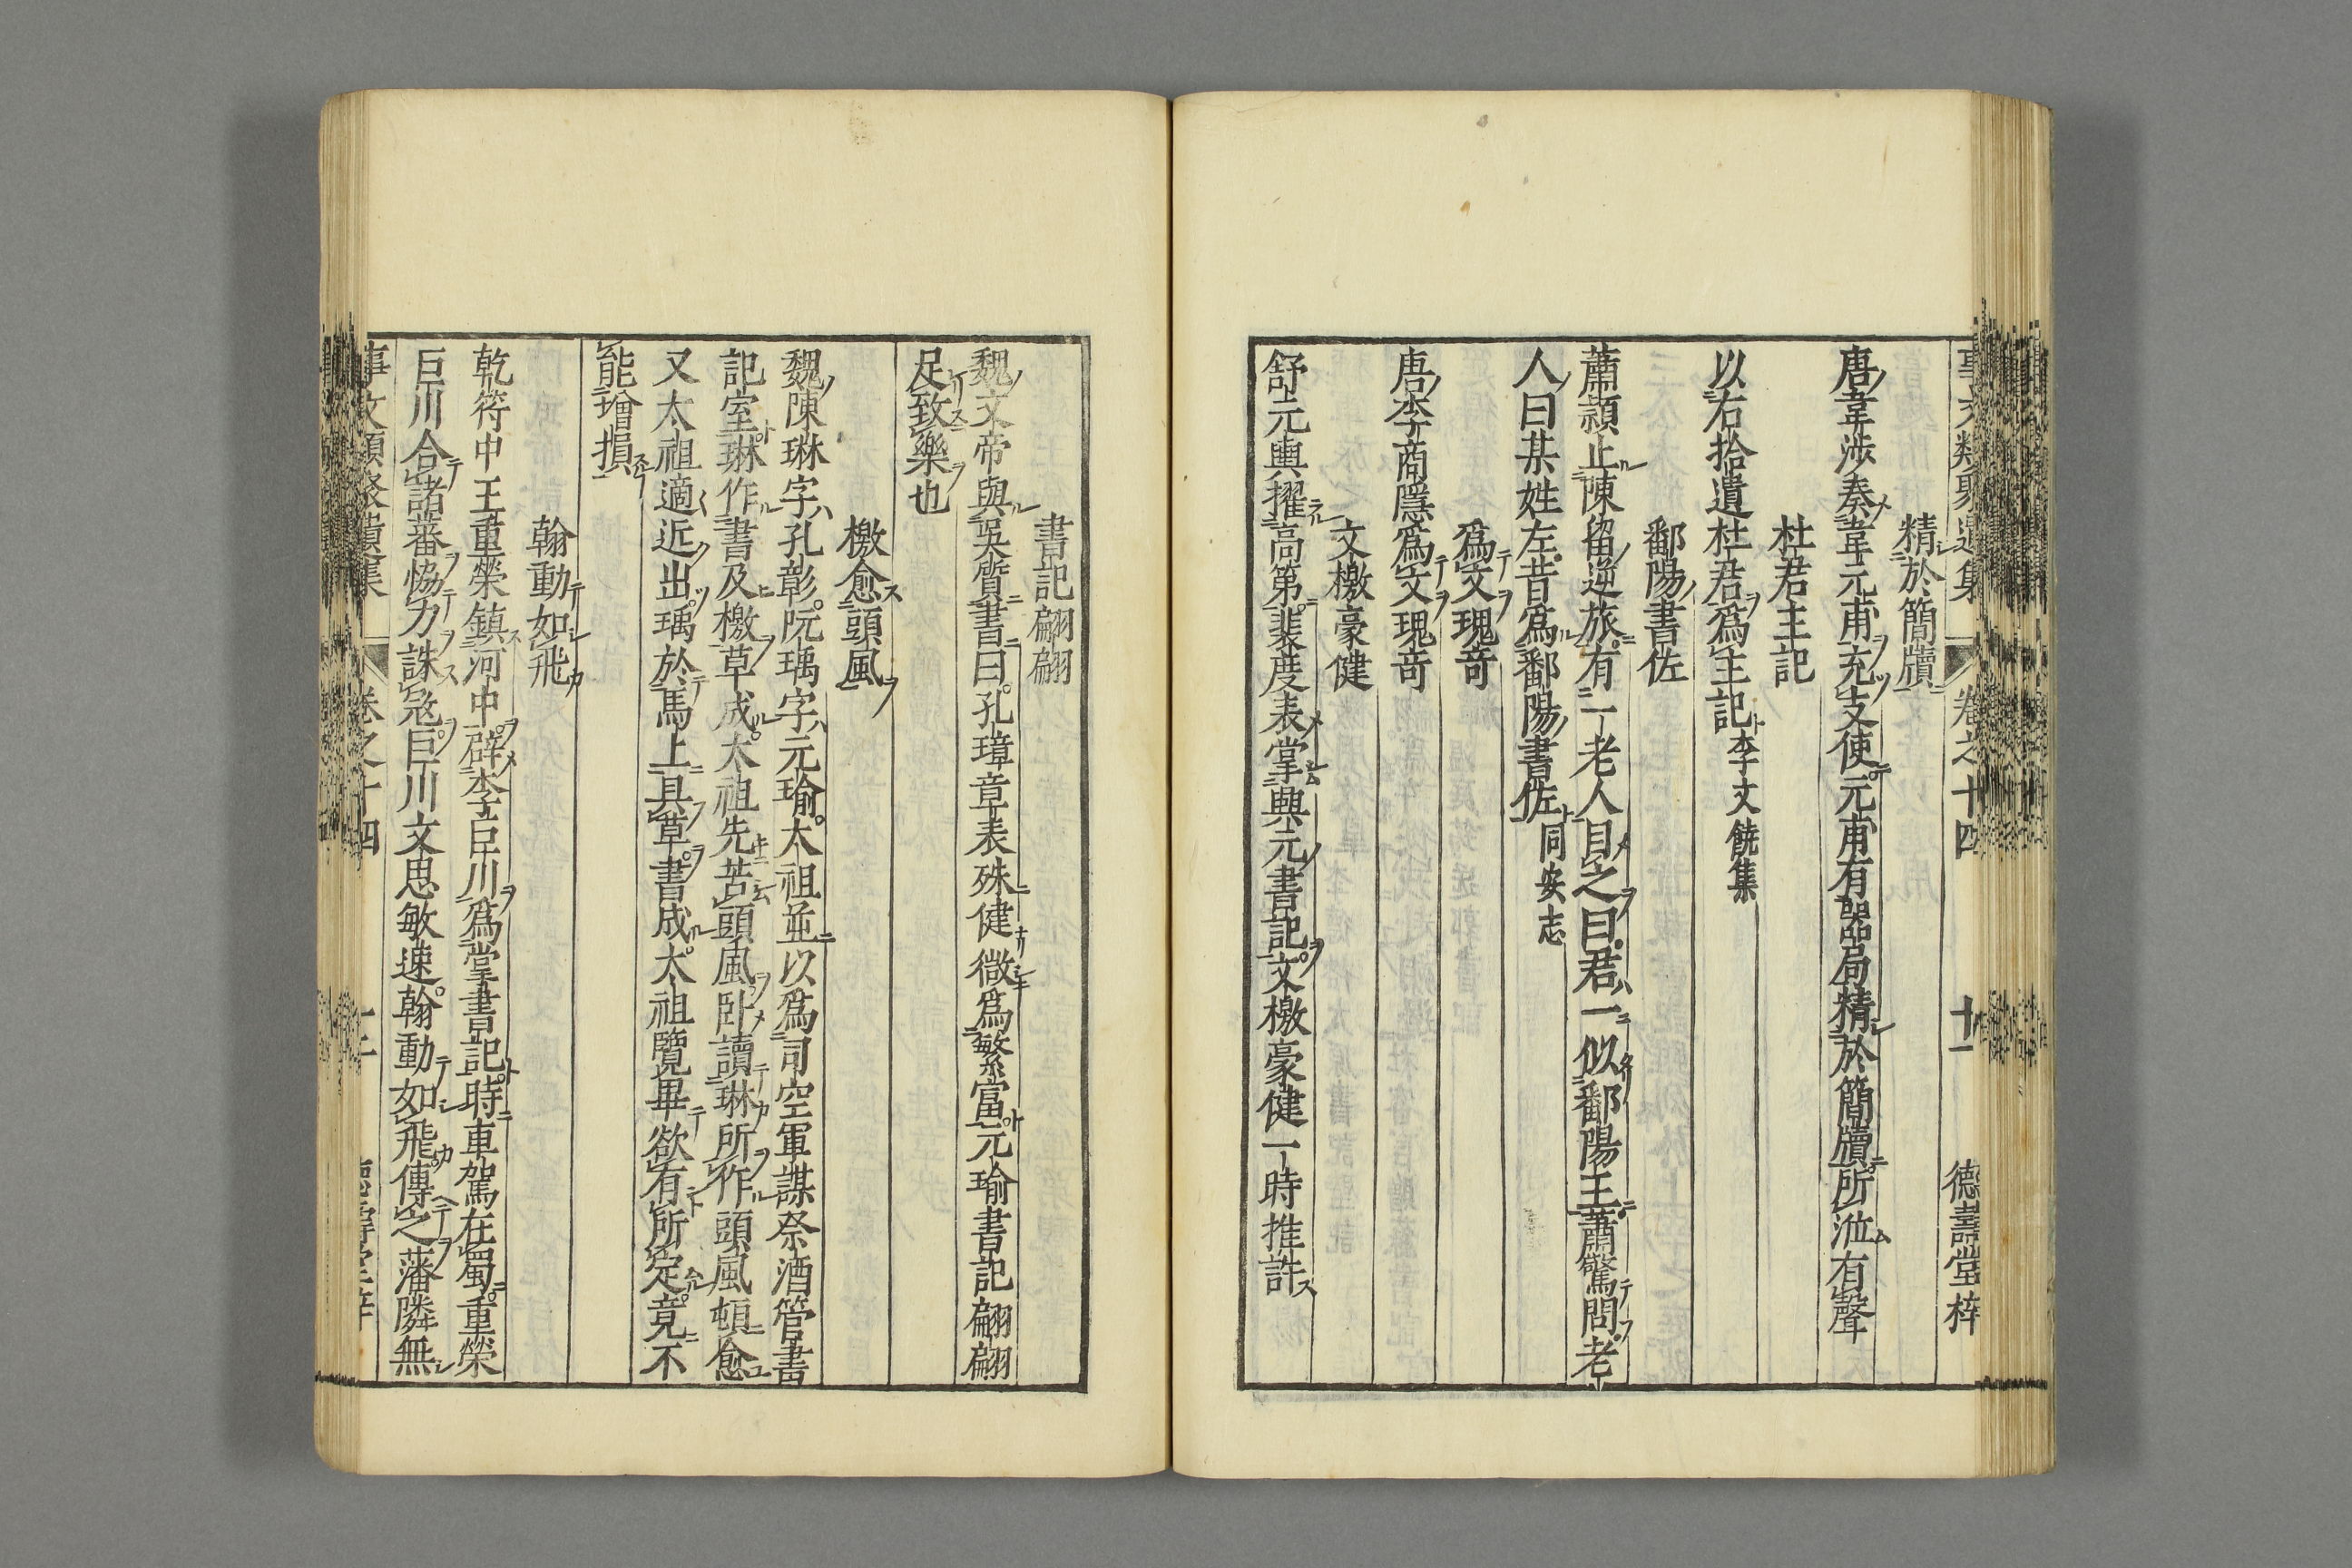 事文類聚遺集 卷之十四 十一 德壽堂梓
精於簡牘
唐韋渉奏韋元甫充支使元甫有器局精於簡牘所涖有聲
杜君主記
以右拾遺杜君爲主記李文饒集
鄱陽書佐
蕭頴止陳留逆旅有一老人目之曰君一似鄱陽王蕭驚問老
人曰某姓左昔爲鄱陽書佐同安志
爲文瑰奇
唐李商隱爲文瑰奇
文檄豪健
舒元輿擢高第裴度表掌興元書記文檄豪健一時推許
書記翩翩
魏文帝與吳質書曰孔璋章表殊健微爲繁富元瑜書記翩翩
足致樂也
檄愈頭風
魏陳琳字孔彰阮瑀字元瑜太祖並以爲司空軍謀祭酒管書
記室琳作書及檄草成太祖先苦頭風臥讀琳所作頭風頓愈
又太祖適近出瑀於馬上具草書成太祖覽畢欲有所定竟不
能增損
翰動如飛
乾符中王重榮鎮河中辟李巨川爲掌書記時車駕在蜀重榮
巨川合諸蕃恊力誅寇巨川文思敏速翰動如飛傳之藩隣無
事文類聚遺集 卷之十四